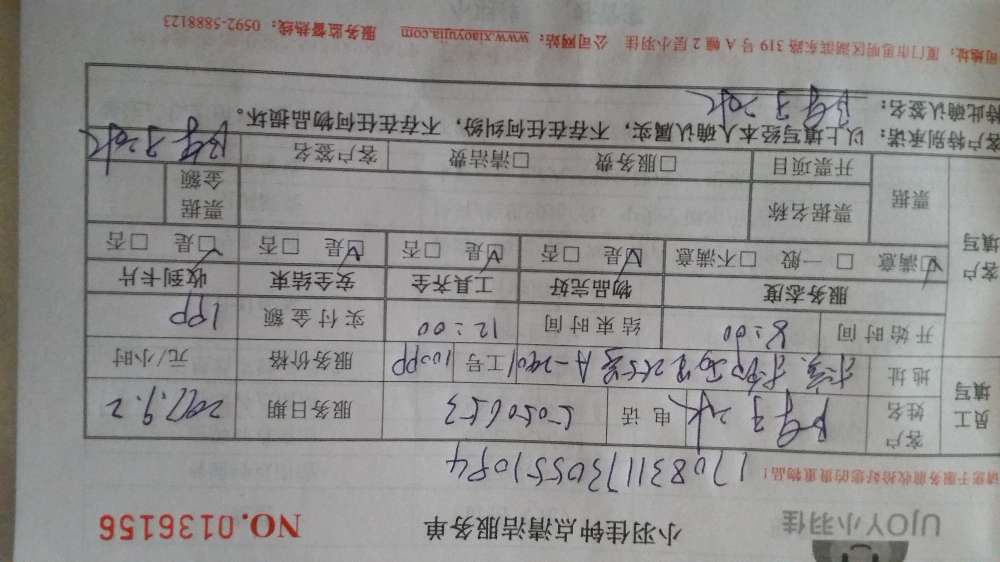 UJOY小羽佳
小羽佳钟点清洁服务单
NO.0136156
请您于服务前收拾好您的贵重物品!
1708311730551084
员工填写
客户姓名
电话 5050653
服务日期 2017.9.2
地址
工号
服务价格
元/小时
开始时间 8:00
结束时间 12:00
实付金额
客户填写
服务态度 物品完好 工具齐全 安全结束 收到卡片
☑满意 □一般 □不满意 ☑是 □否 ☑是 □否 ☑是 □否 ☑是 □否
票据
票据名称
票据金额
开票项目 □服务费 □清洁费 客户签名
客户特别承诺:以上填写经本人确认属实,不存在任何纠纷,不存在任何物品损坏。
特此确认签名:
司地址:厦门市思明区湖滨东路319号A幢2层小羽佳 公司网站:www.xiaoyujia.com 服务监督热线:0592-5888123